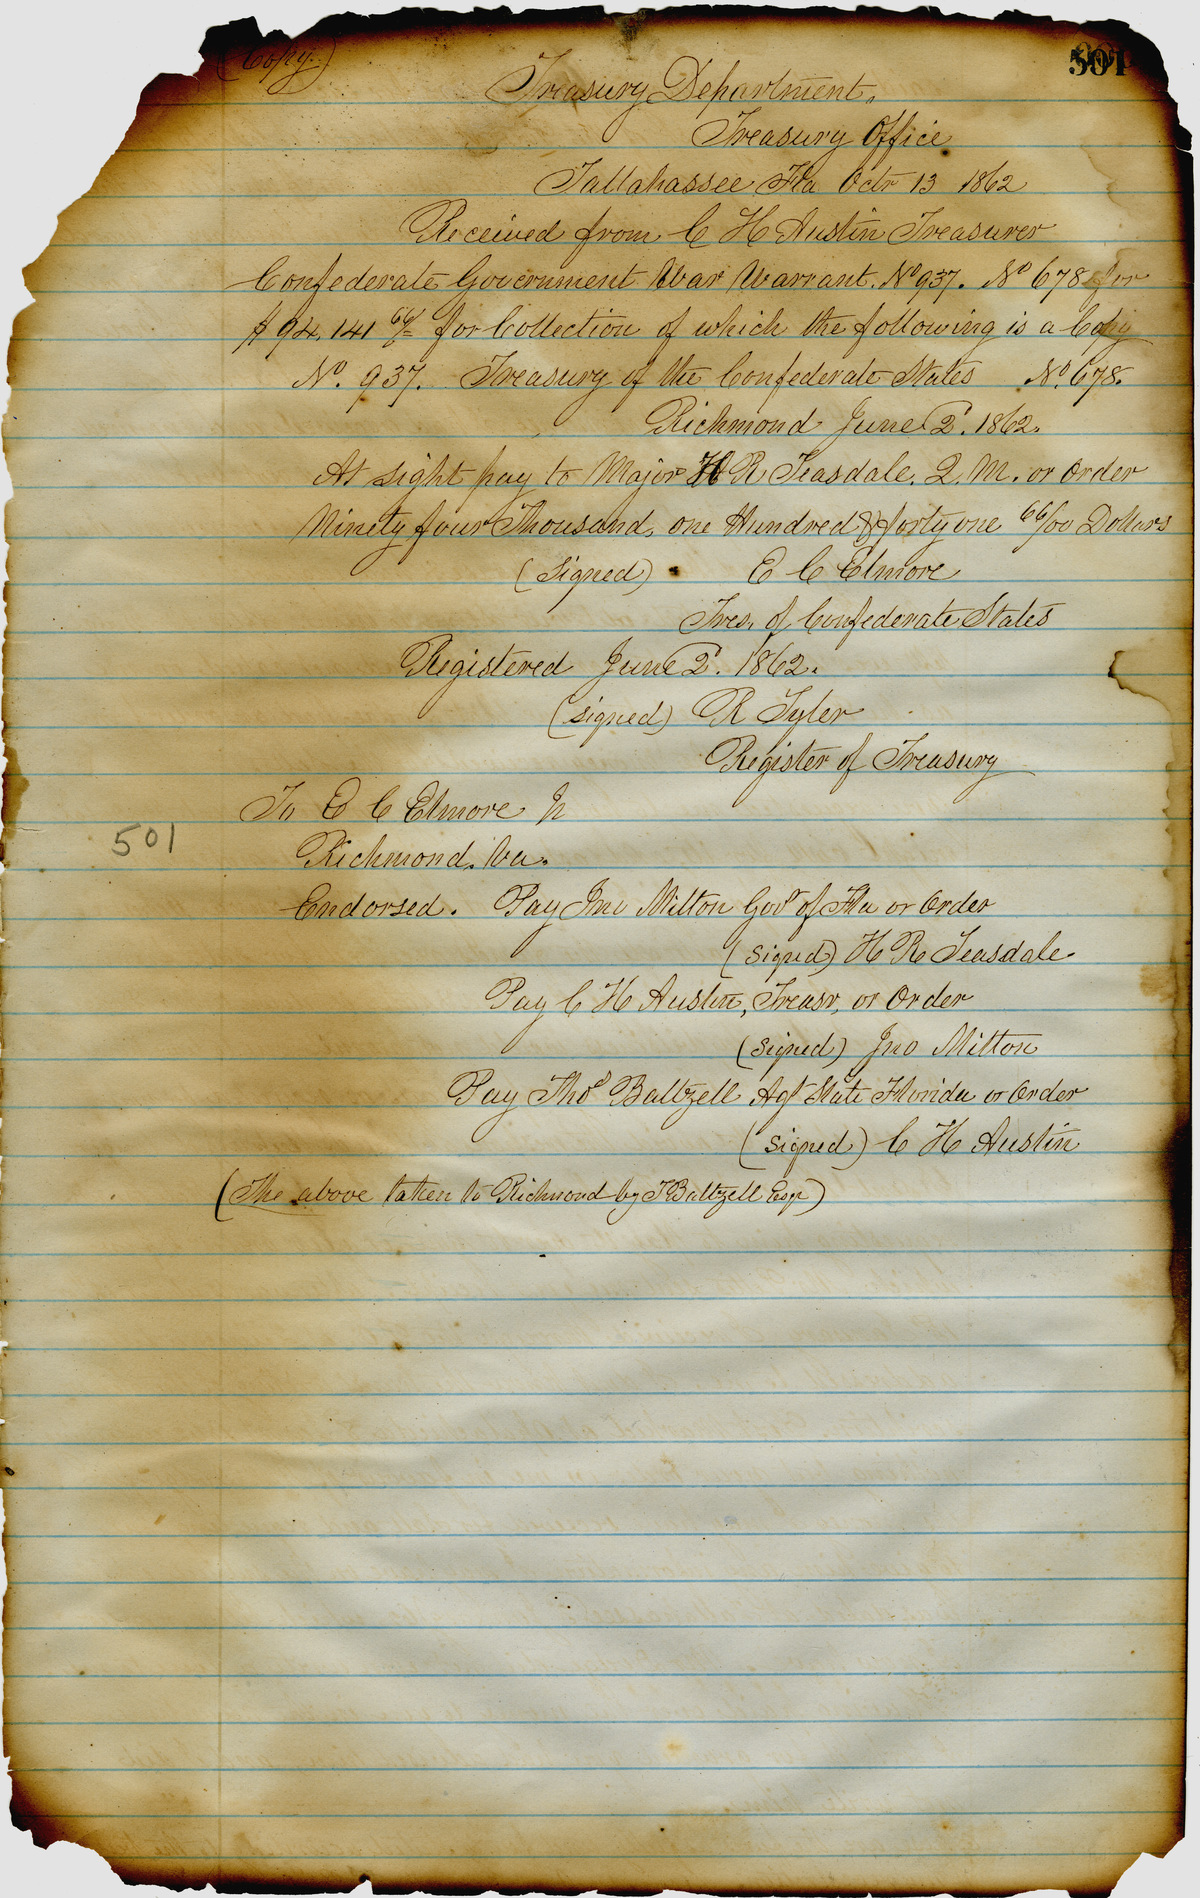 (Copy.)
501
Treasury Department.
Treasury Office
Tallahassee Fla Octr 13 1862
Received from C H Austin Treasurer
Confederate Government War Warrant. No 937. No 678 for
$94,141 66/ for Collection of which the following is a Copy
No. 937. Treasury of the Confederate States No. 678.
Richmond June 2. 1862.
At sight pay to Major H R Teasdale. Q. M. or Order
Ninety four Thousand, one Hundred & forty one 66/00 Dollars
(Signed) E C Elmore
Tres. of Confederate States
Registered June 2. 1862.
(signed) R Tyler
Register of Treasury
To E C Elmore Jr
501
Richmond. Va.
Endorsed. Pay Jno Milton Govr of Fla or Order
(signed) H R Teasdale.
Pay C H Austin, Treasr, or Order
(signed) Jno Milton
Pay Thos Baltzell Agt State Florida or Order
(signed) C H Austin
(The above taken to Richmond by T Baltzell Esqr)